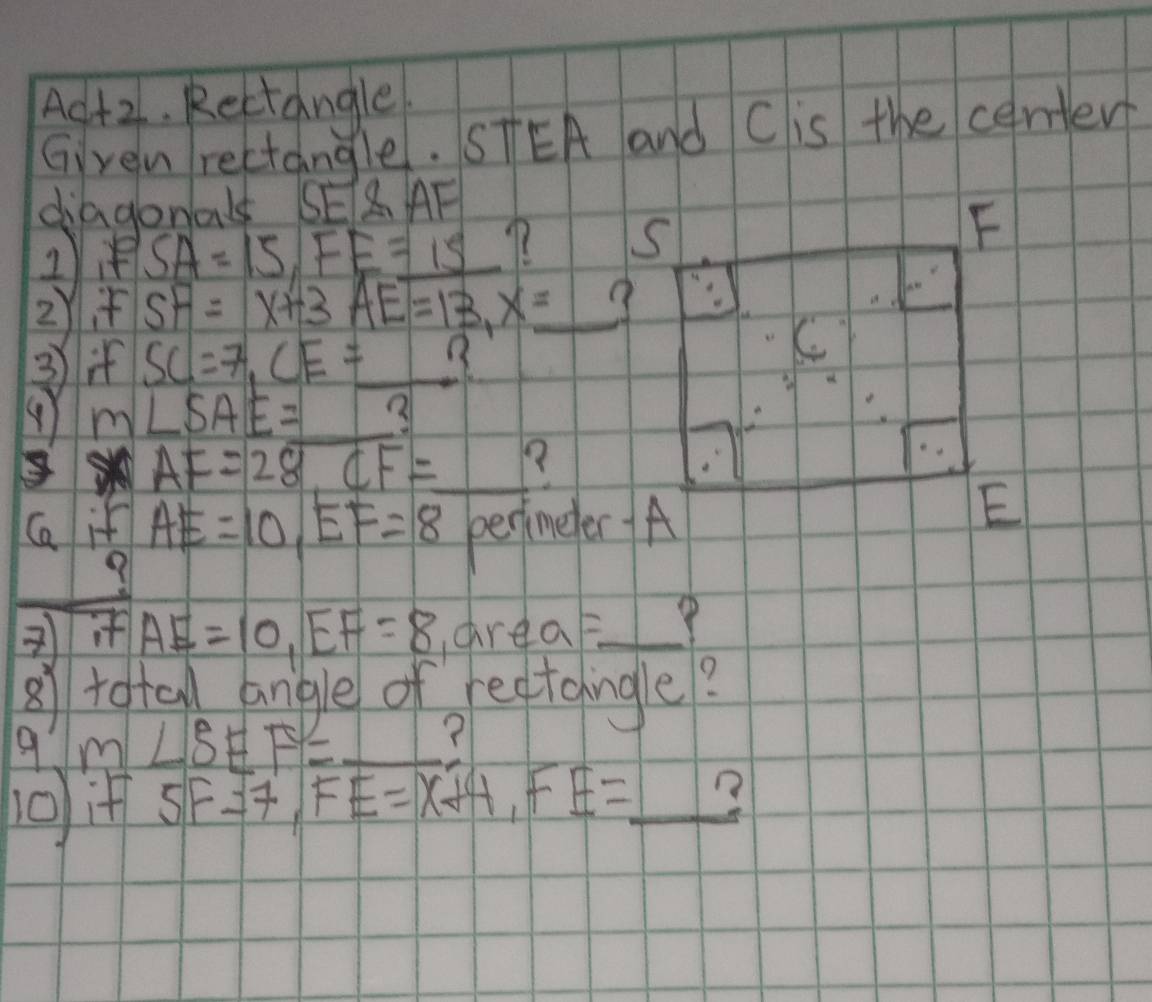 Act 2. Rectangle.
Given rectangle. STEA and C is the center
diagonals SE & AF
1) if SA = 15, FE = 15 ?
2) if SF = x+3 AE = 13, x = ___ ?
3) if SC = 7, CE = ___ ?
4) m ∠SAE = ___ ?
5 AF = 28 CF = ___ ?
6 if AE = 10, EF = 8 perimeter -
___ ?
7) if AE = 10, EF = 8, area = ___ ?
8) total angle of rectangle?
9 m ∠SEF = ___ ?
10) if SF = 7, FE = x+4, FE = ___ ?
S F
C
A E